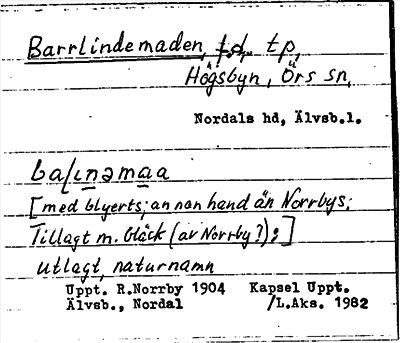 Barrlindemaden, tp,
Högsbyn, Örs sn,
Nordals hd, Älvsb.l.
[med blyerts; annan hand än Norrbys;
Tillagt m. bläck (av Norrby?):]
utlagt, naturnamn
Uppt. R.Norrby 1904 Kapsel Uppt.
Älvsb., Nordal /L.Aks. 1982